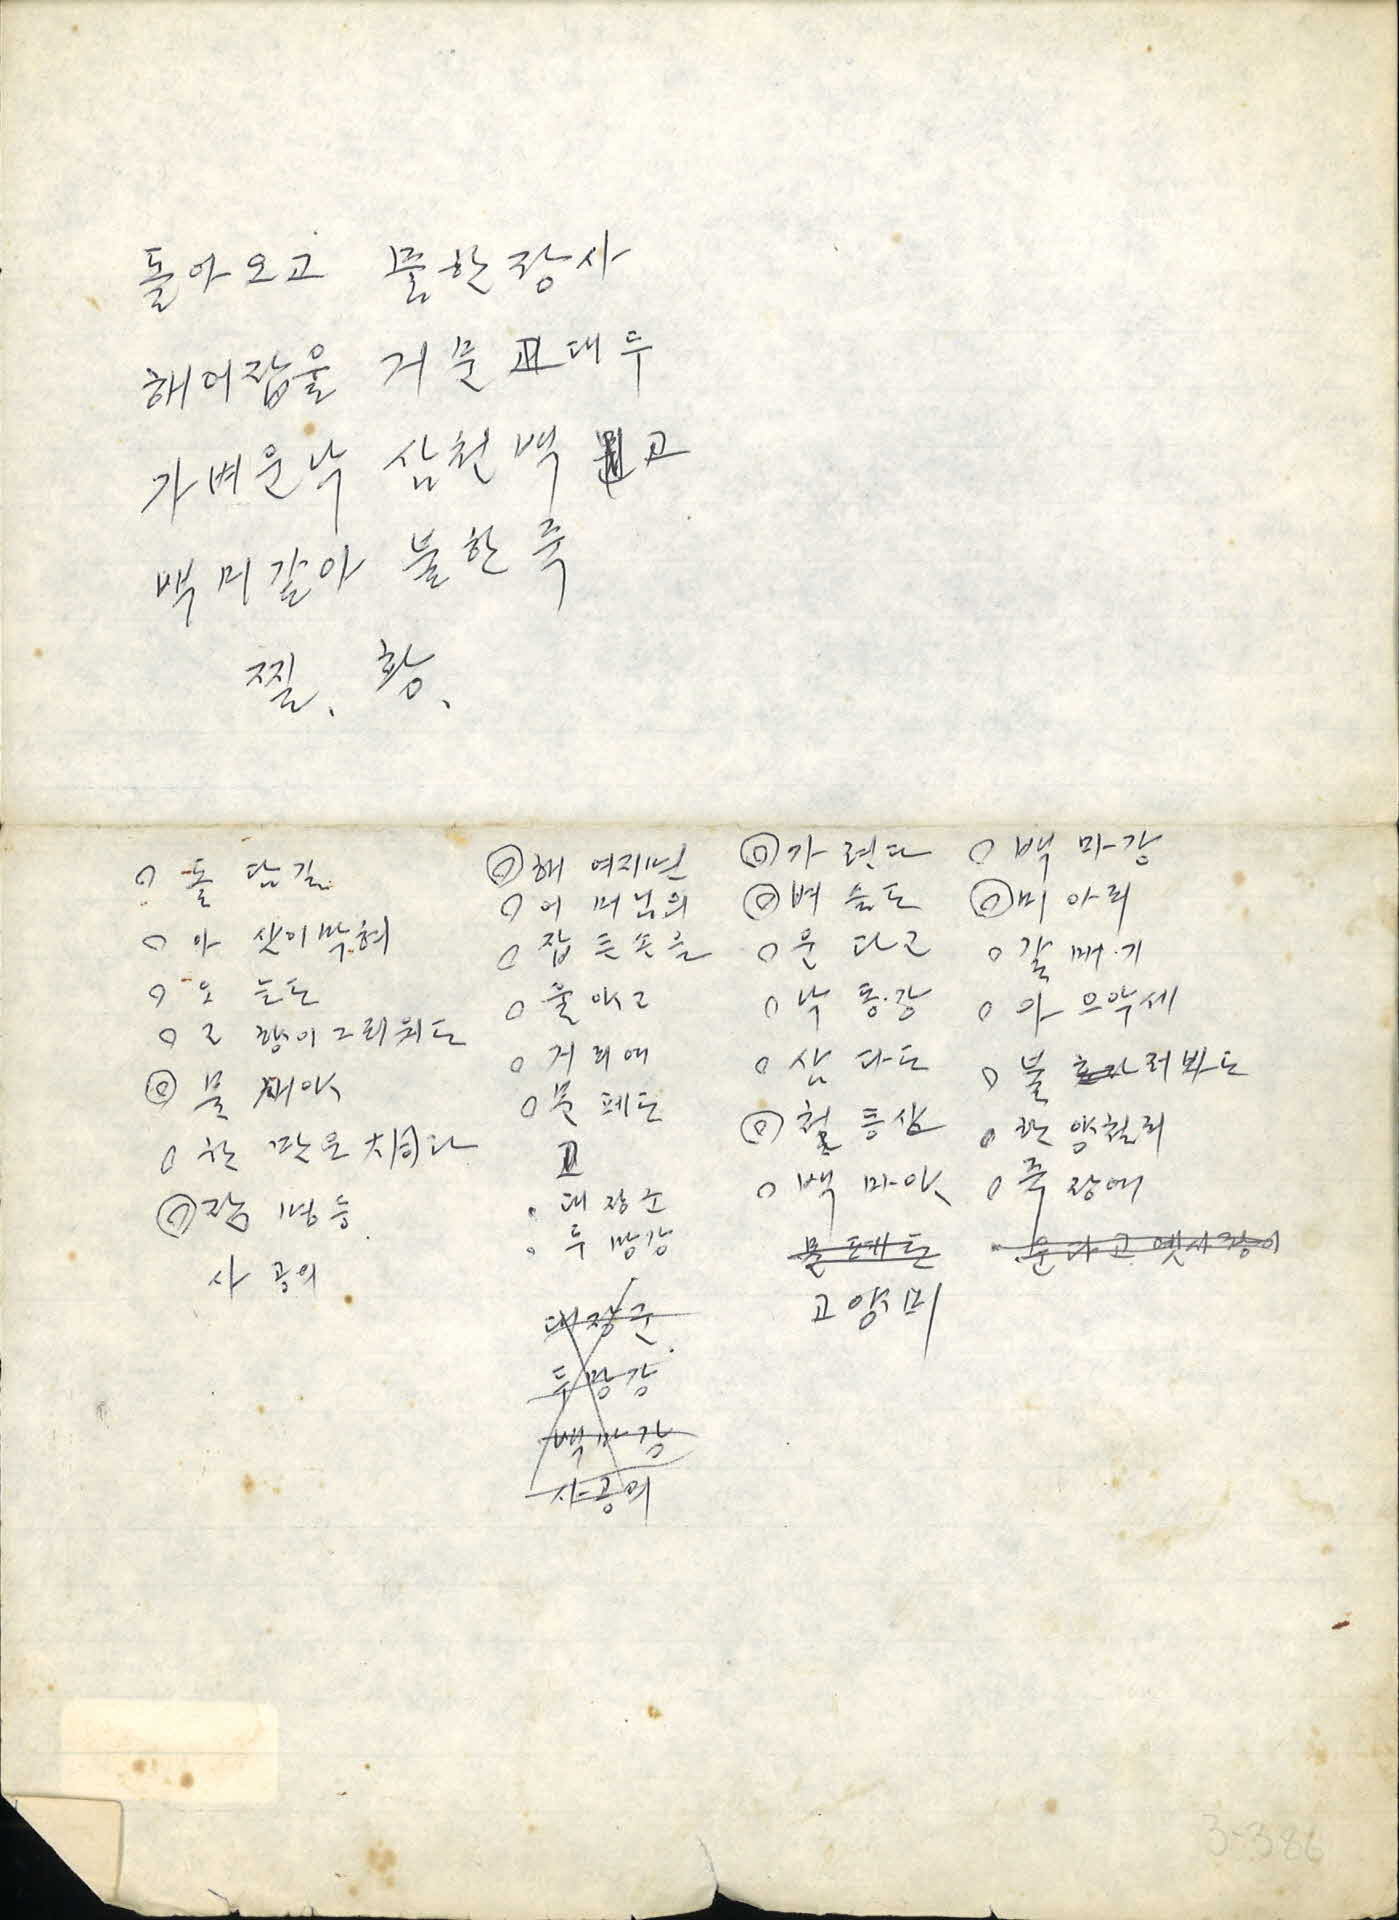 돌아오고 물한장사
해어잡울 거문고대두
가벼운낙 삼천백 고
백미갈아 불한죽
찔、황、
돌 담길
아 싯이박혀
오 는도
고 향이그리워도
물 새야
한 많은 大同다
장 명등
사 공의
해 여지난
어 머님의
잡 는손을
울 야고
거 리에
문 페도
고
대 장군
두 망강
대장군
두망강
백마강
사공의
가 련다
벼 슬도
운 다고
낙 동강
삼 다도
철 등삼
백 마야
물 페도
고 양미
백 마강
미 아리
갈 매기
아 으악세
불 러봐도
한 양천리
죽 장에
운다고 옛사랑이
3-386